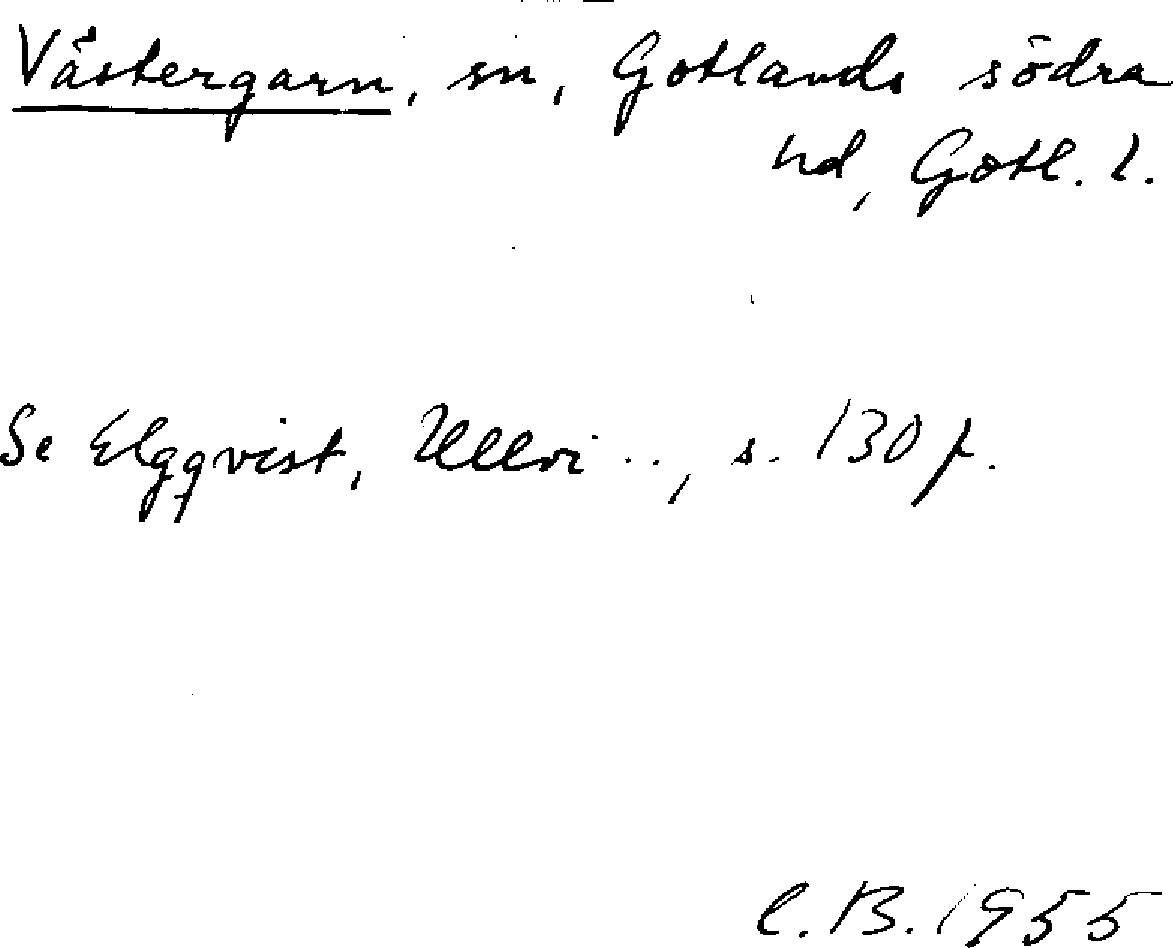 Västergarn, sn, Gotlands södra
hd, Gotl. l.
Se Elgqvist, Ullvi .., s. 130 f.
C.B. 1955